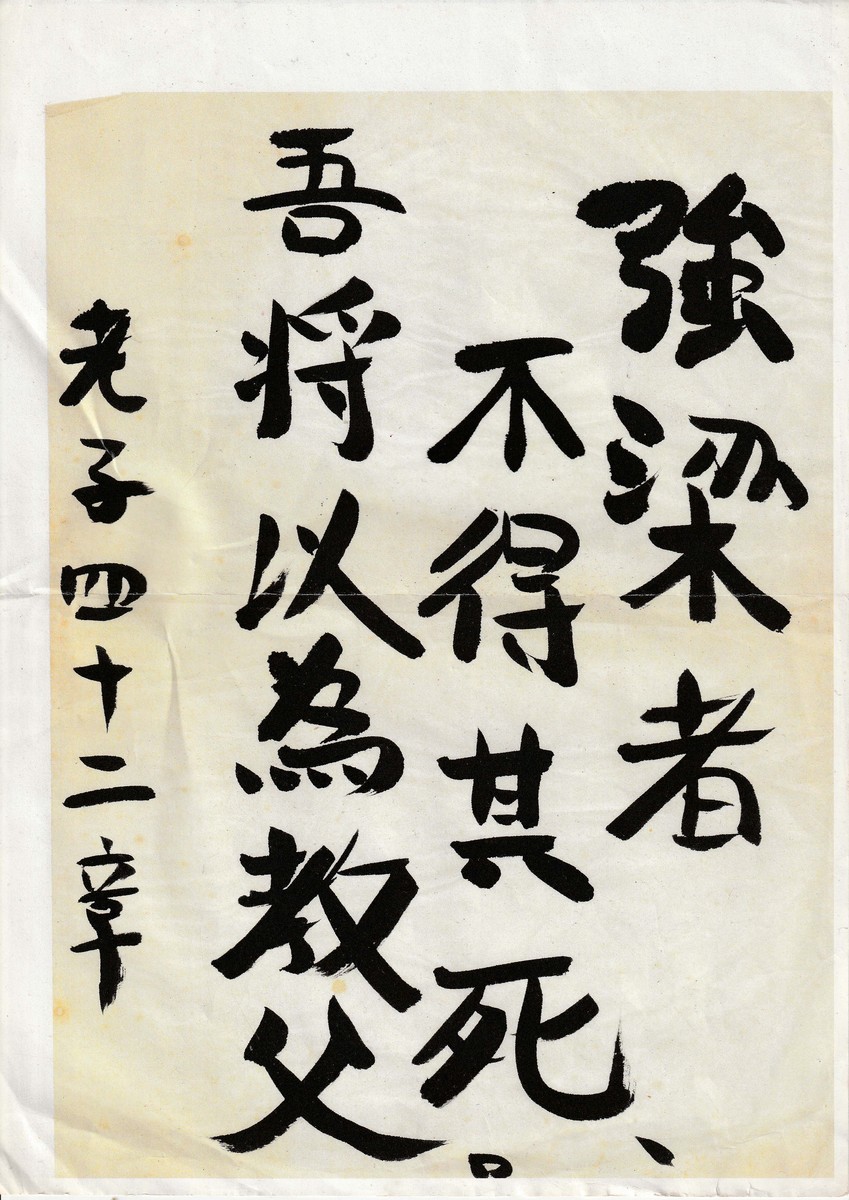 強梁者
不得其死、。
吾将以為教父
老子四十二章